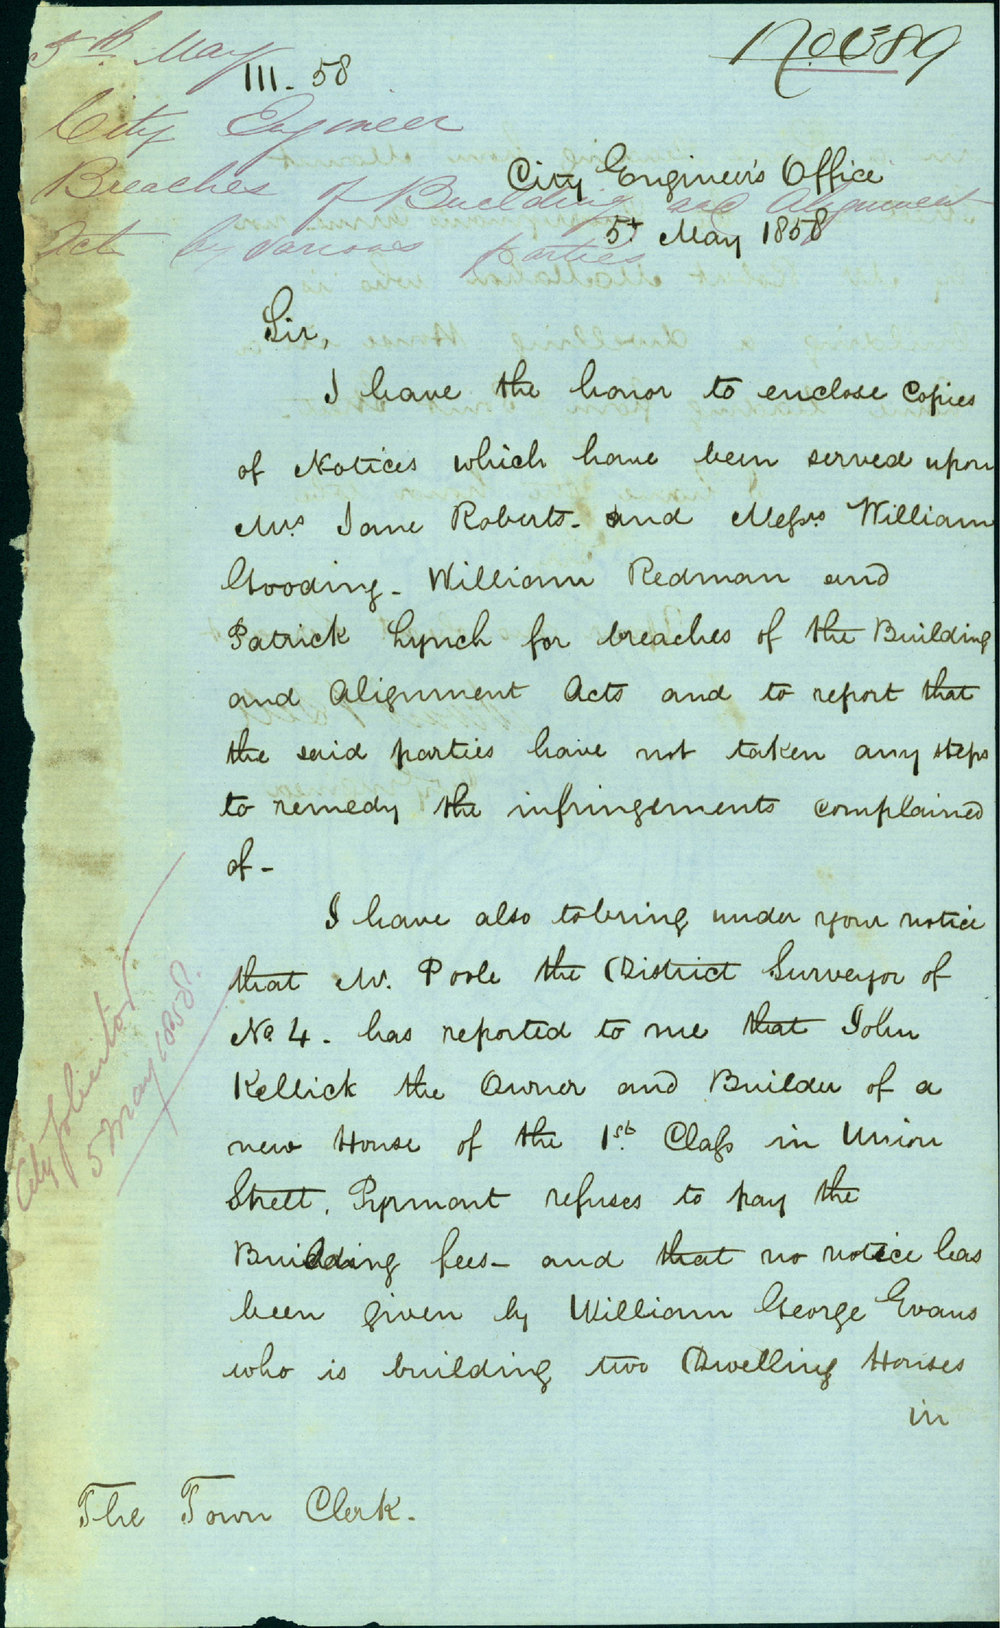 5th May
111. 58
No 389
City Engineer
Breaches of Building and Alignment
Acts by various parties
City Engineer's Office
5th May 1858
Sir,
I have the honor to enclose copies
of Notices which have been served upon
Mrs Jane Roberts - and Messrs William
Gooding - William Redman and
Patrick Lynch for breaches of the Building
and Alignment Acts and to report that
the said parties have not taken any steps
to remedy the infringements complained
of -
I have also to bring under your notice
that Mr. Poole the District Surveyor of
No 4. has reported to me that John
Kellick the Owner and Builder of a
new House of the 1st Class in Union
Street, Pyrmont refuses to pay the
Building fees - and that no notice has
been given by William George Evans
who is building two Dwelling Houses
in
City Solicitor
5 May 1858.
The Town Clerk.